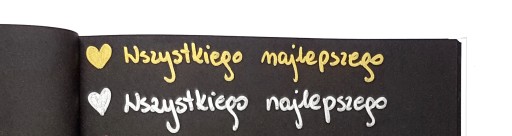 Wszystkiego najlepszego
Wszystkiego najlepszego